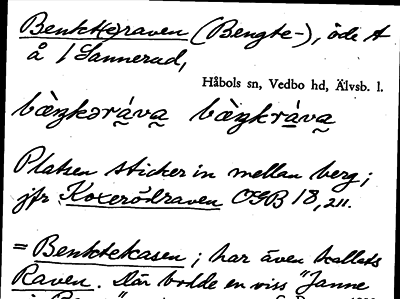 Benkt(e)raven (Bengte-), öde t
å / Sannerud,
Håbols sn, Vedbo hd, Älvsb. l.
bὲŋkəráva bὲŋkráva
Platsen sticker in mellan berg;
jfr. Koxerödraven OGB 18, 211.
= Benktekasen; har även kallats
Raven. Där bodde en viss "Janne